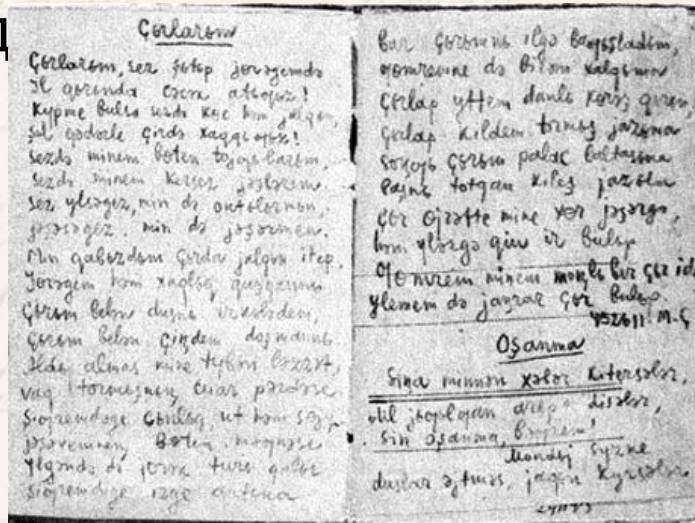 Д
Çьrlarьm
Çьrlarьm, sez şytep jɵrəgemdə
Il qьrьnda cəcək atьgьz!
Kypme bulsa sezdə kɵc həm jalqьn,
Şul qədərle çirdə xaqqьgьz!
Sezdə minem bɵten tojgьlarьm,
Sezdə minem kersez jəşlərem.
Sez ylsəgez, min də onьtьlьrmьn,
jəşəsəgez, min də jəşərmen.
Min qabьzdьm çьrda jalqьn itep
Jɵrəgem həm xaqlьq quşqanьn
Çьrьm belən dusnь irkələdem,
Çьrьm belən çiŋdem doşmannь.
Aldьj almas mine tybən ləzzət,
vaq tormьşnьŋ cuar pərdəse
Şigremdəge cьnlьq, ut həm sɵjy
jəşəvemneŋ bɵten məgnəse
Ylgəndə də jɵrək turь qalьr
Şigremdəge izge antьna
Bar çьrьmnь ilgə bagьşladьm,
gomremne də birəm xalqьma
Çьrlap yttem danlь kɵrəş qьrьn,
Çьrlap kildem tormьş jazьna
Soŋgь çьrьm palac baltasьna
Başnь totqan kileş jazьla
Çьr ɵjrətte mine xɵr jəşərgə,
həm ylərgə qьju ir bulьp
Gomrem minem moŋlь ber çьr ide
ylemem də jaŋrar çьr bulьp.
M.Ç.
Ьşanma
Siŋa minnən xəbər kitersələr,
Ul jьgьlgan arьp disələr,
Sin ьşanma, bəgrem!
Mondьj syzne
duslar əjtməs, jaqьn kyrsələr.